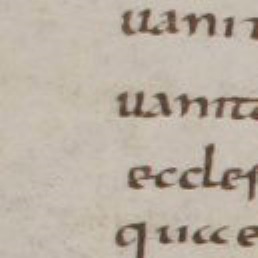 uanit
uanita
eccles
quae